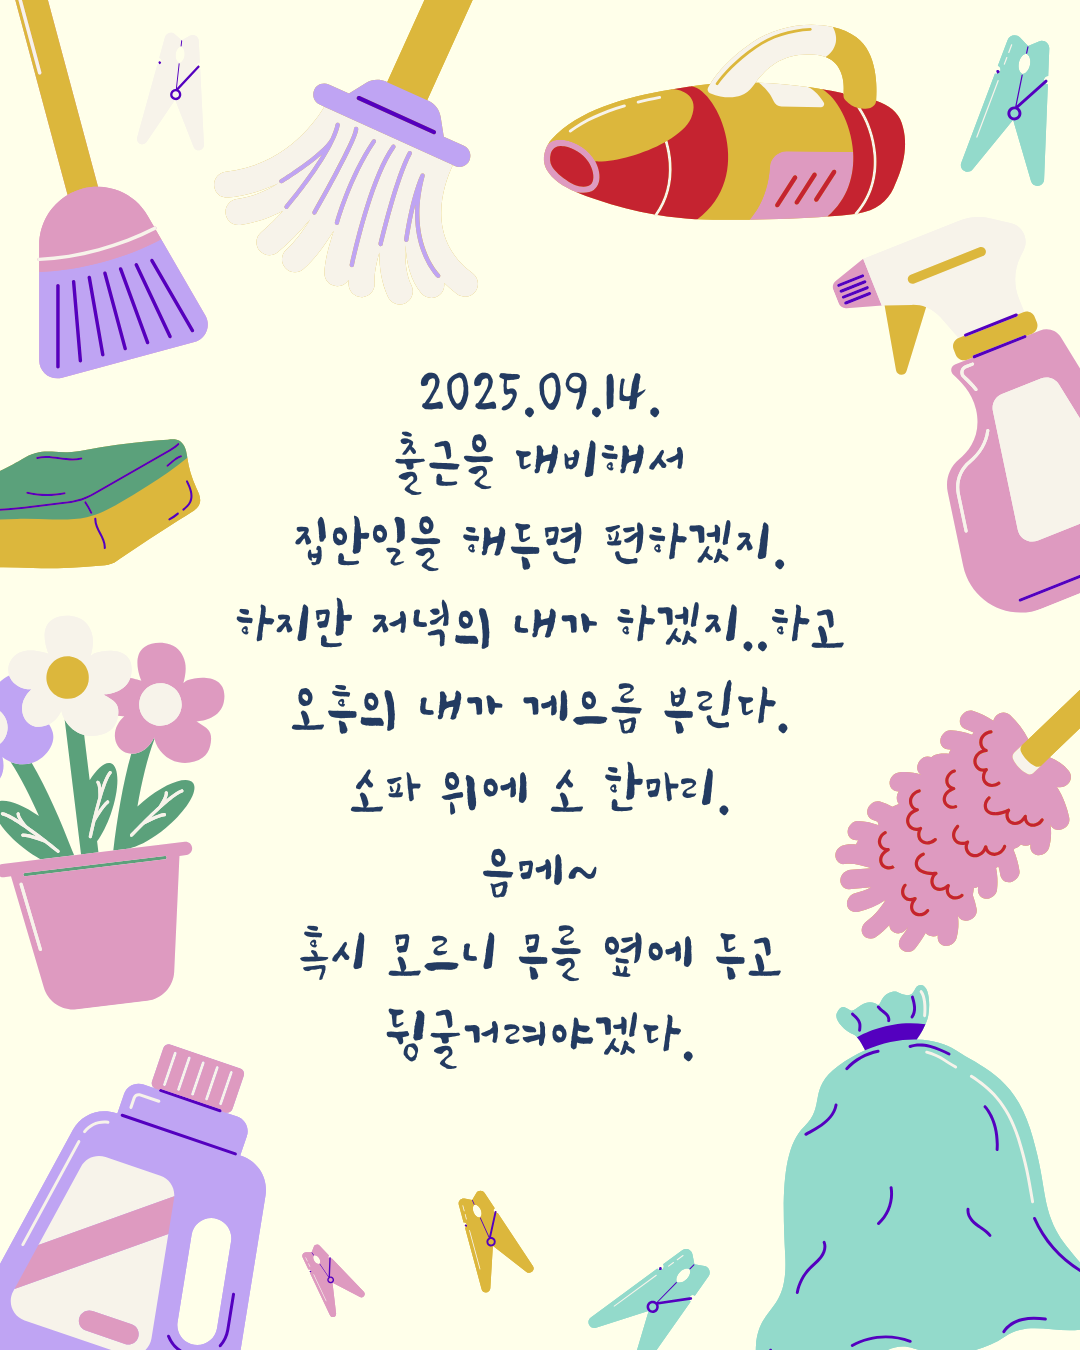 2025.09.14.
출근을 대비해서
집안일을 해두면 편하겠지.
하지만 저녁의 내가 하겠지..하고
오후의 내가 게으름 부린다.
소파 위에 소 한마리.
음메~
혹시 모르니 무를 옆에 두고
뒹굴거려야겠다.